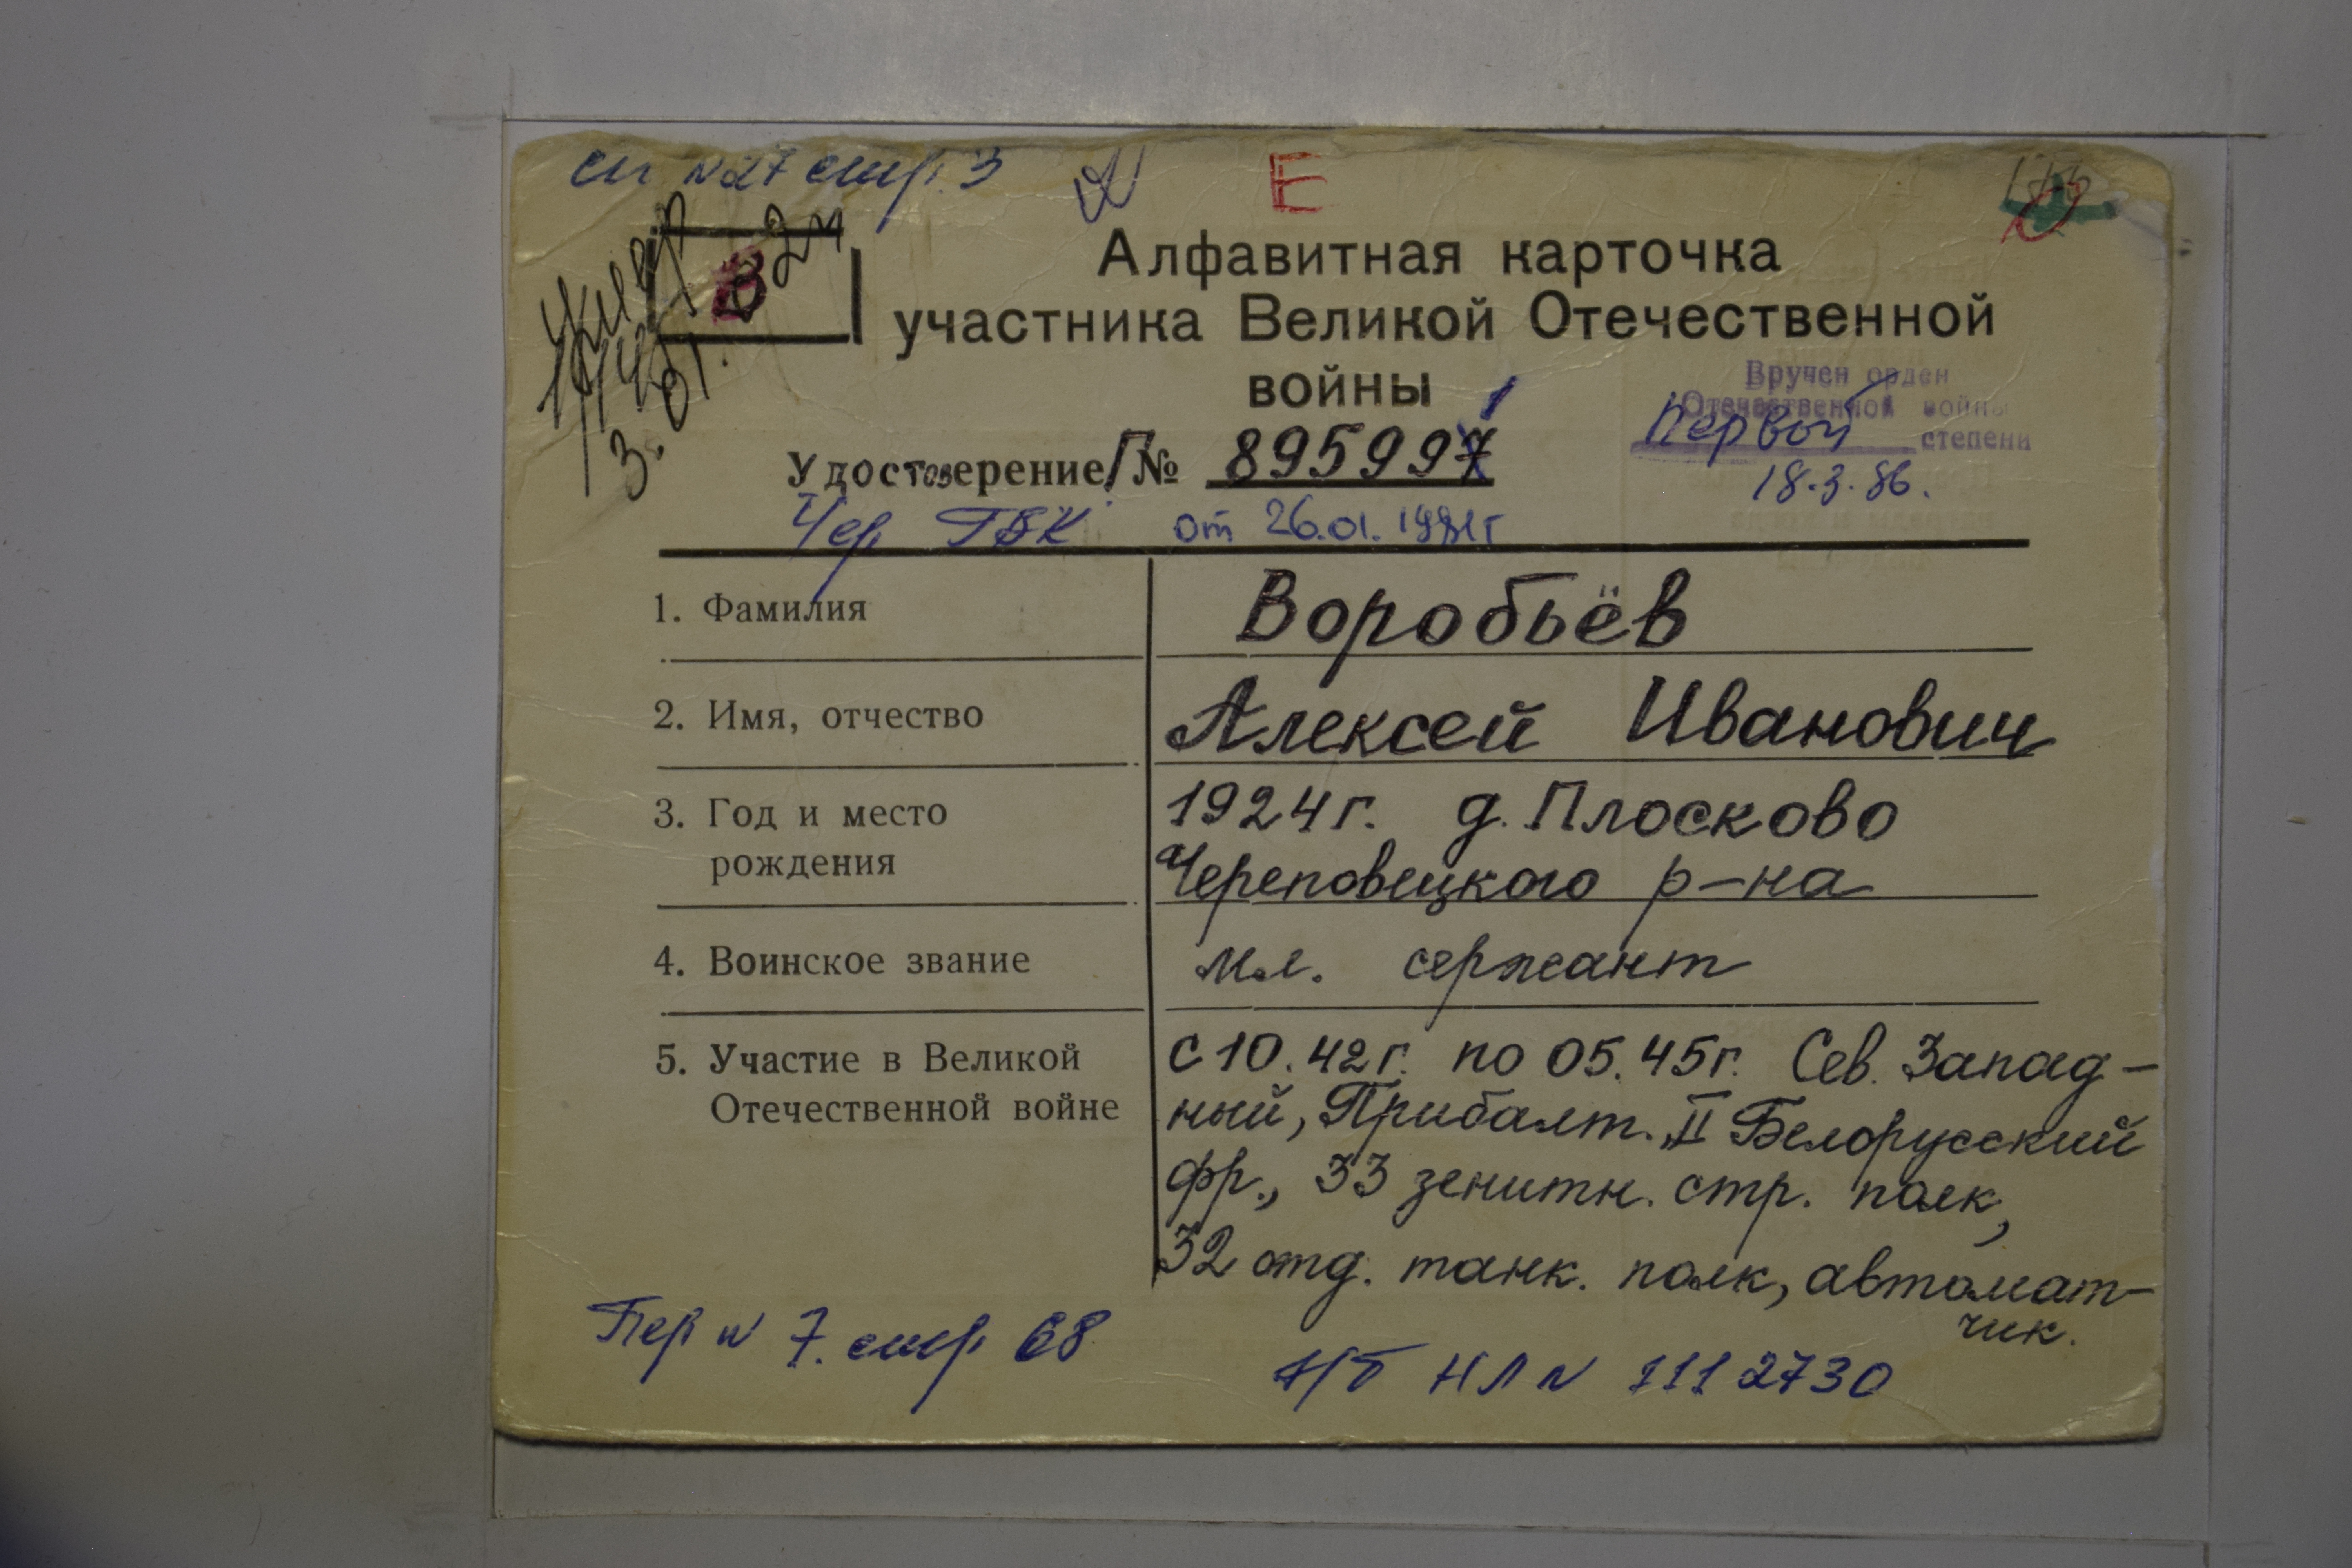 сп №27 стр. 3
Е
173
В
умер
3.01.
Алфавитная карточка
участника Великой Отечественной
войны
Вручен орден
Отечественной войны
Первой степени
18.3.86.
Удостоверение/Г№ 8959971
Чер. ГВК от 26.01.1981г
1. Фамилия
Воробьёв
2. Имя, отчество
Алексей Иванович
3. Год и место
рождения
1924г. д. Плосково
Череповецкого р-на
4. Воинское звание
мл. сержант
5. Участие в Великой
Отечественной войне
с 10.42г. по 05.45г. Сев. Запад-
ный, Прибалт. II Белорусский
фр., 33 зенитн. стр. полк,
32 отд. танк. полк, автомат-
чик.
Пер № 7. стр 68
Н/Б НЛ № 1112730